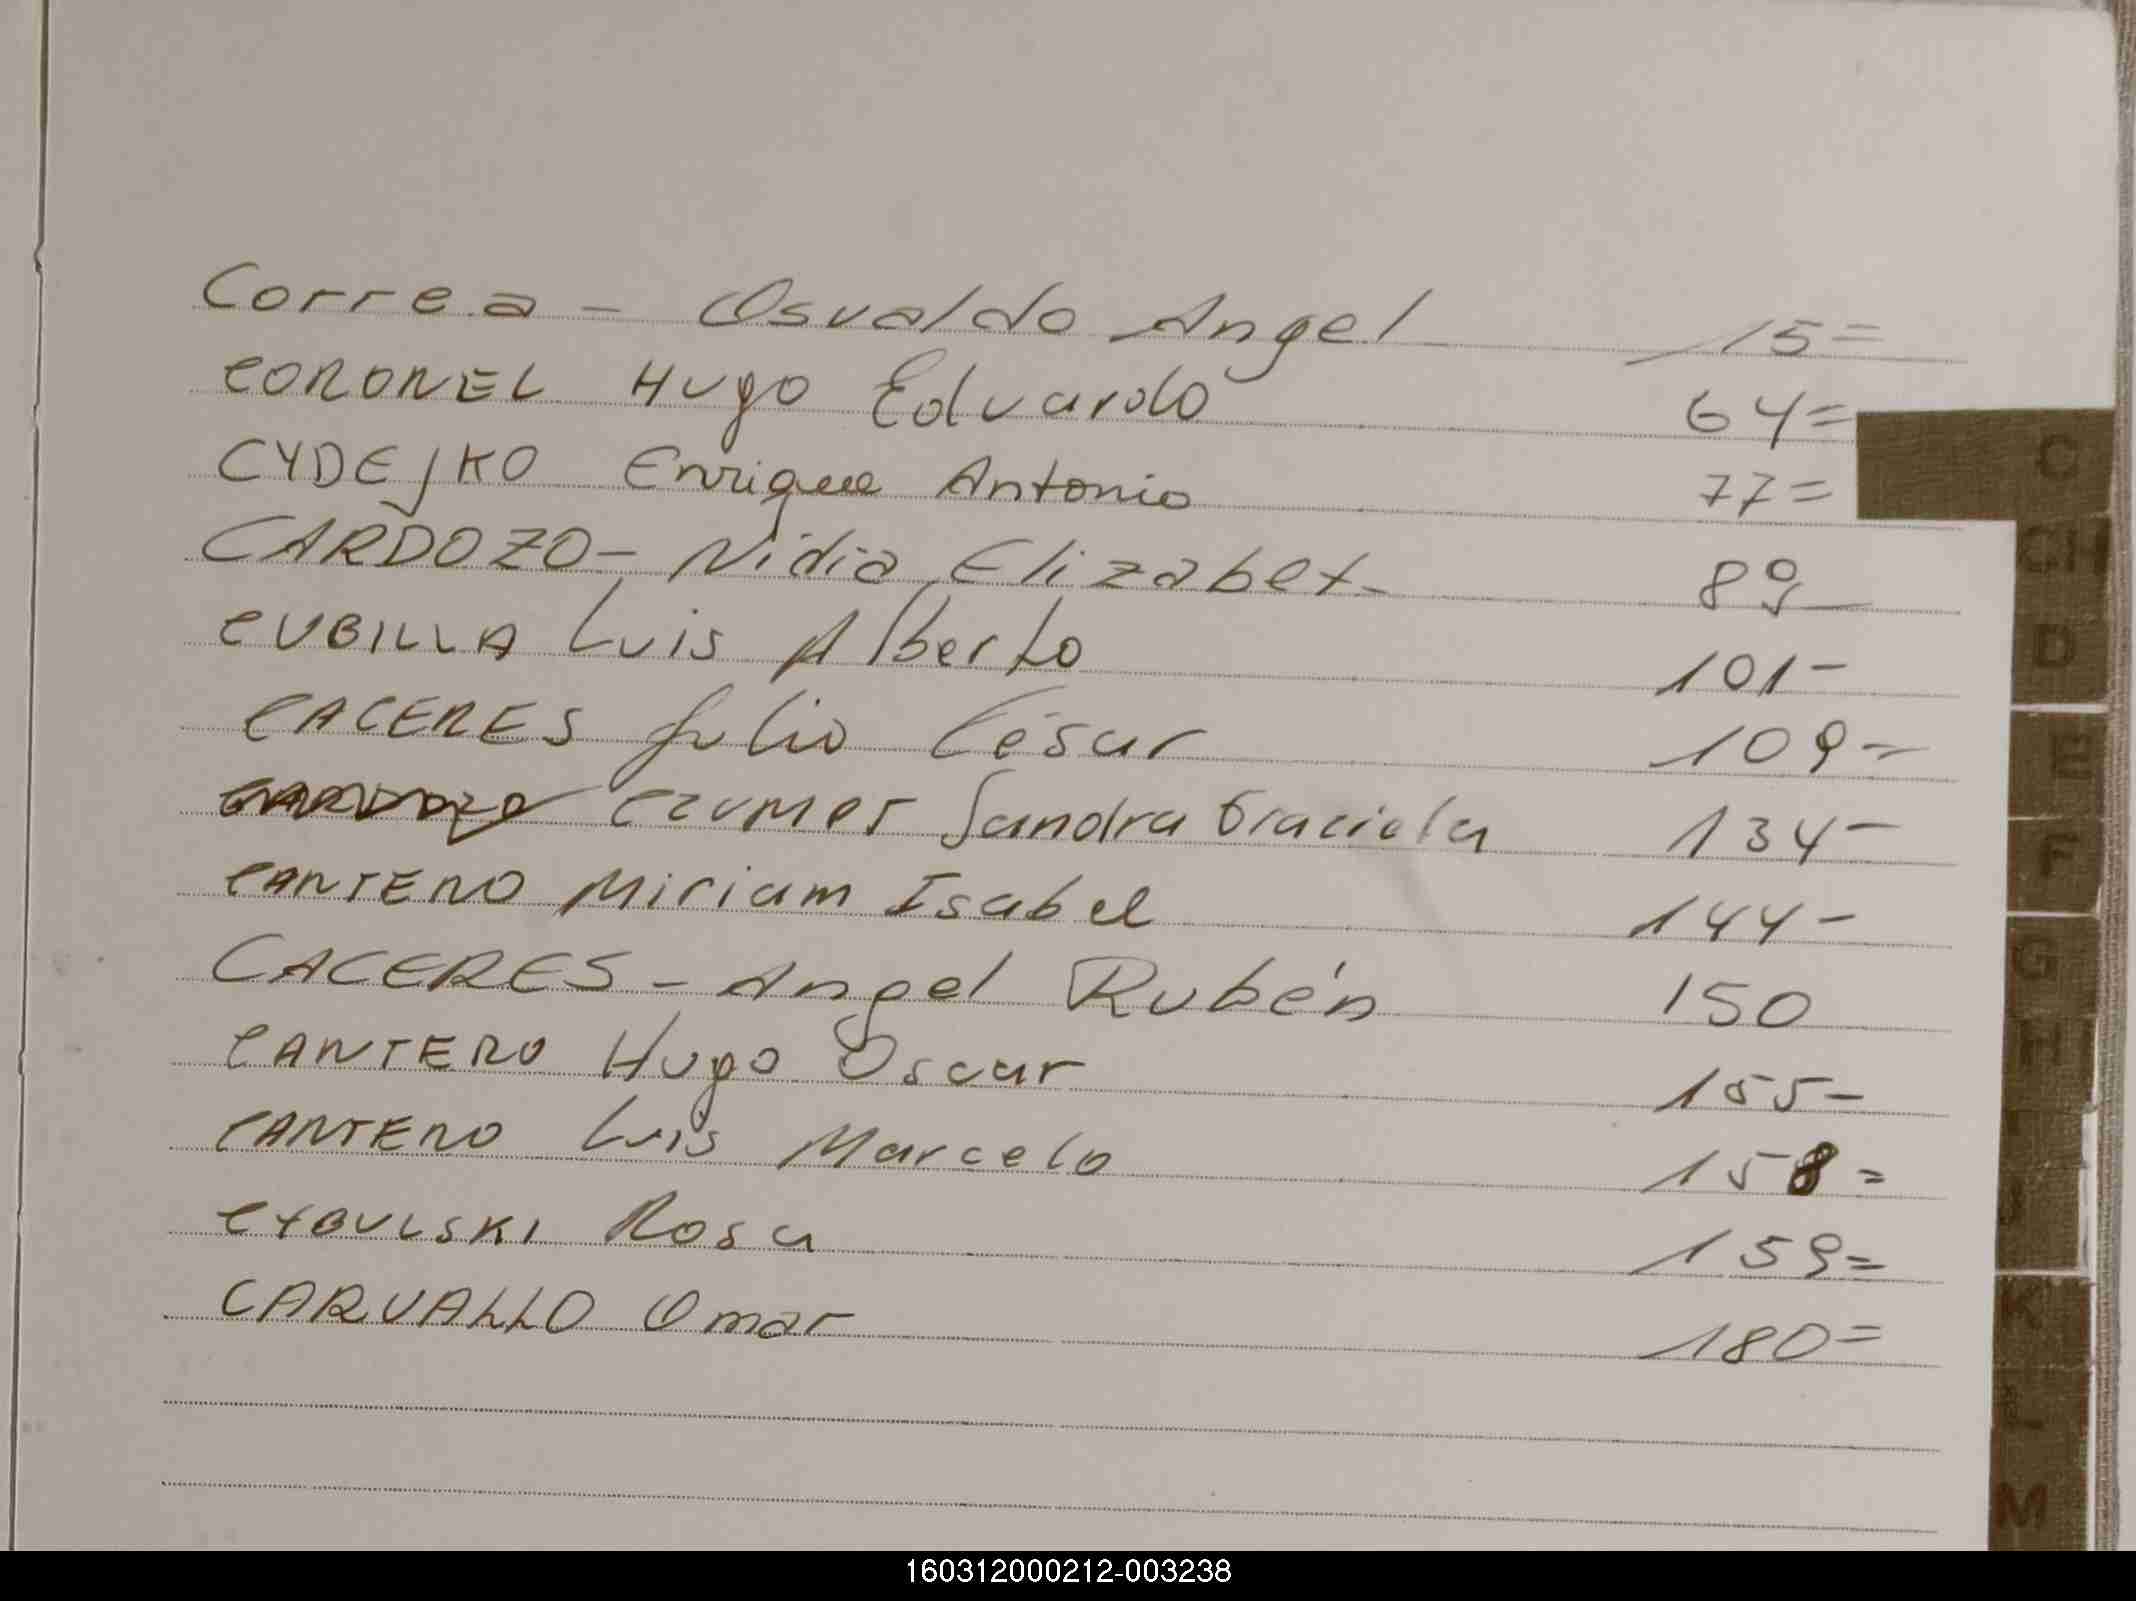 Correa - Osvaldo Angel 15=
CORONEL Hugo Eduardo 64=
CYDEJKO Enrique Antonio 77=
CARDOZO - Nidia Elizabet - 89
CUBILLA Luis Alberto 101-
CACERES Julio César 109-
CARDOZO CZUMER Sandra Graciela 134-
CANTERO Miriam Isabel 144-
CACERES - Angel Rubén 150
CANTERO Hugo Oscar 155-
CANTERO Luis Marcelo 158=
CYBULSKI Rosa 159=
CARVALLO Omar 180=
C
CH
D
E
F
G
H
I
J
K
L
M
160312000212-003238